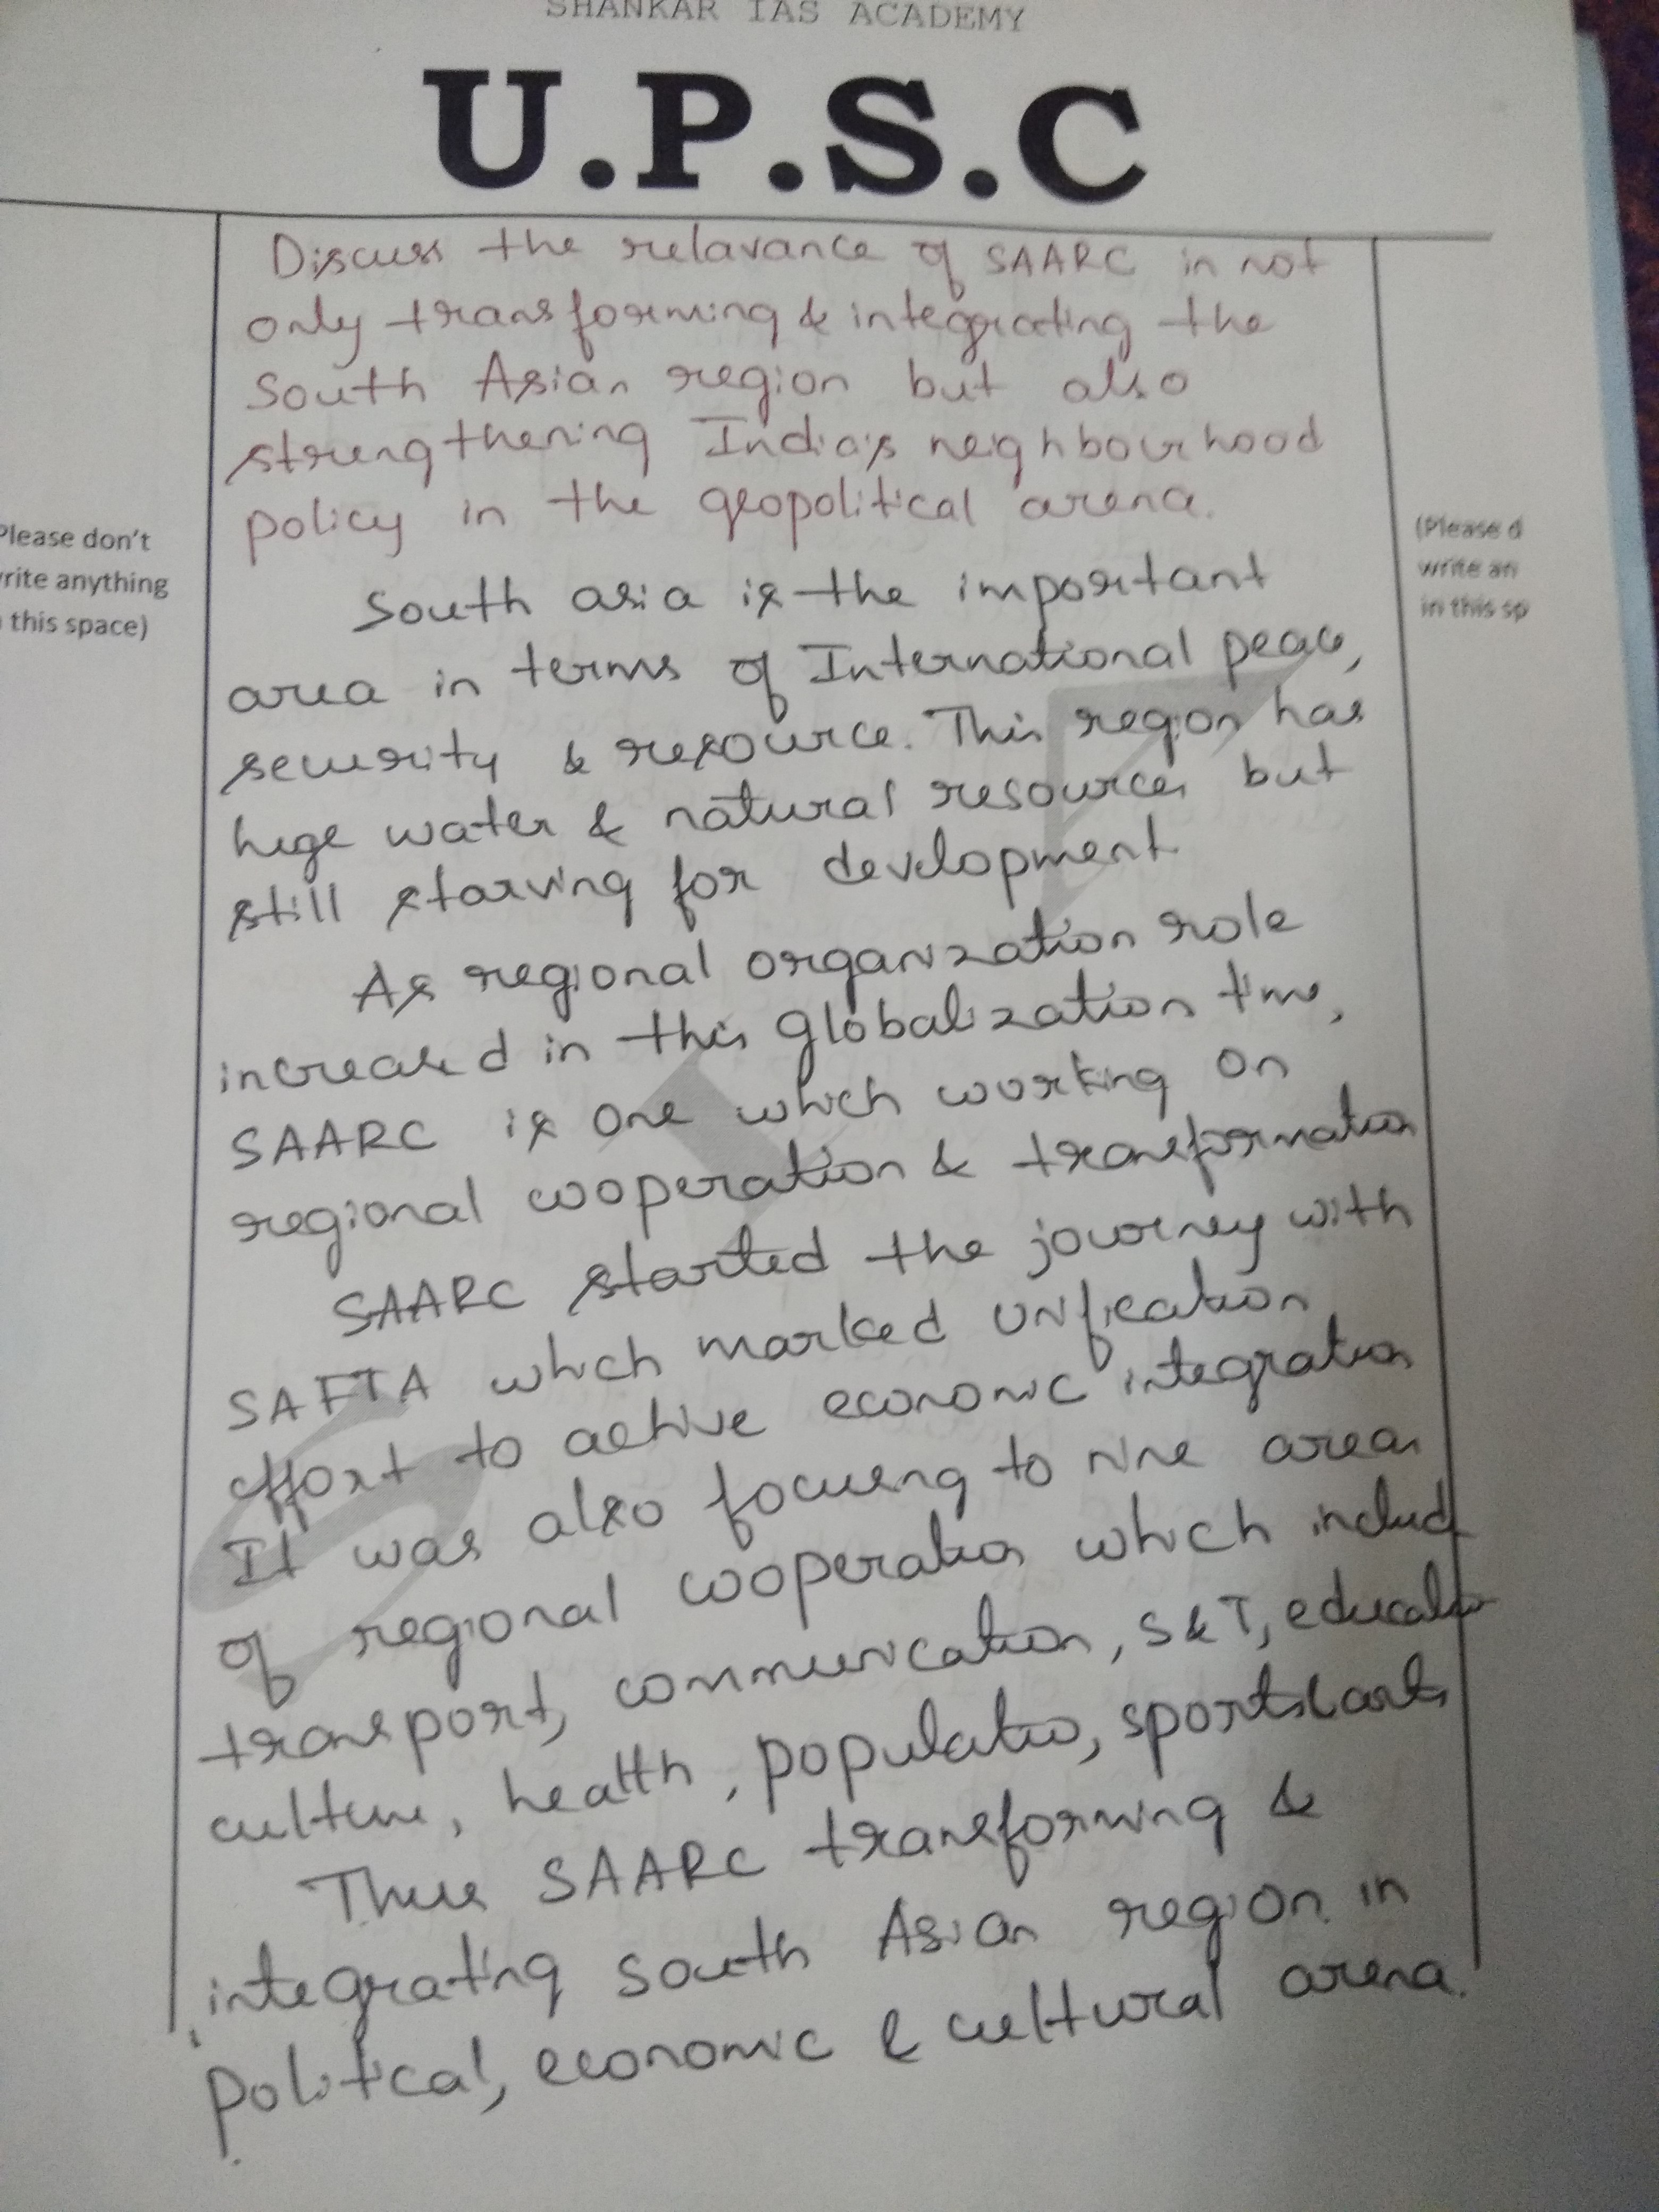 SHANKAR IAS ACADEMY
U.P.S.C
Discuss the relavance of SAARC in not
only transforming & integrating the
South Asian region but also
strengthening India's neighbourhood
policy in the geopolitical arena.
Please don't
write anything
this space)
(Please d
write an
in this sp
South asia is the important
area in terms of International peace,
security & resource. This region has
huge water & natural resources but
still starving for development.
As regional organization role
increased in this globalization time,
SAARC is one which working on
regional cooperation & transformation
SAARC started the journey with
SAFTA which marked unification
effort to achive economic integration
It was also focusing to nine areas
of regional cooperation which includ
transport, communication, S&T, education
culture, health, population, sports & arts
Thus SAARC transforming &
integrating south Asian region in
political, economic & cultural arena.